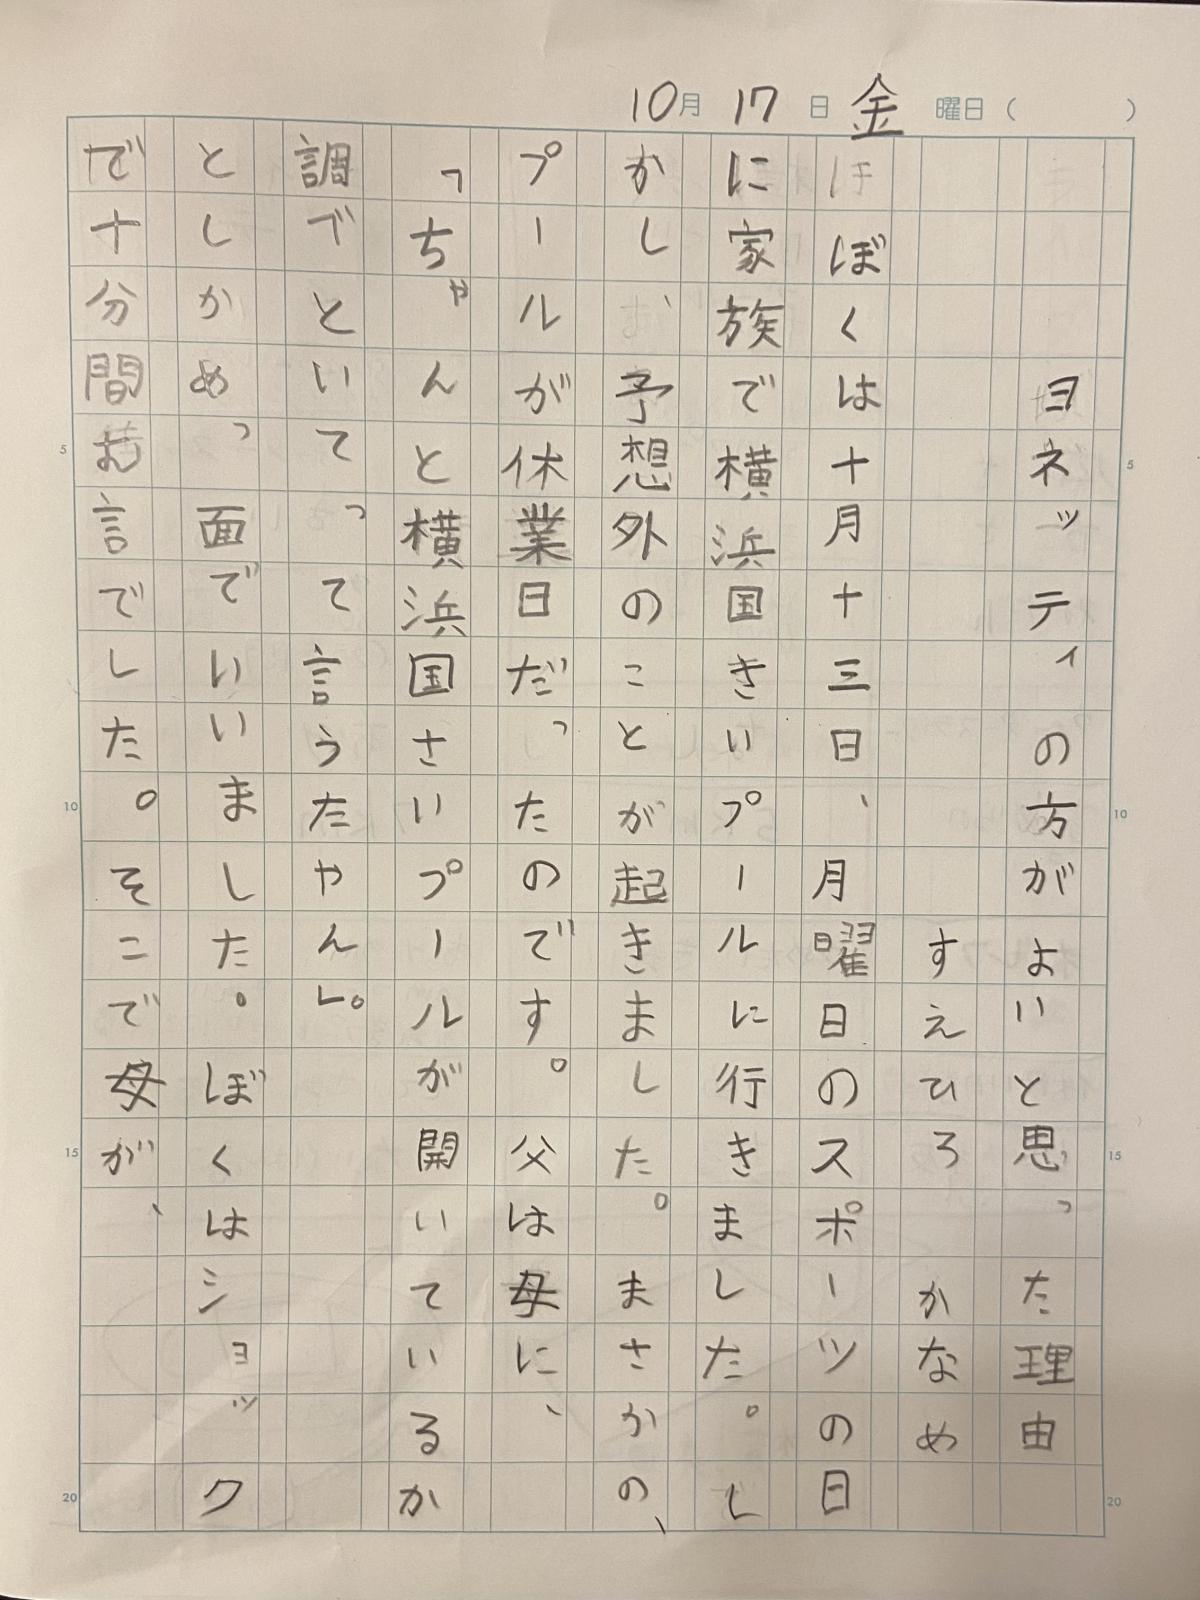 10月17日金曜日( )
ヨネッティの方がよいと思った理由
すえひろ かなめ
ぼくは十月十三日、月曜日のスポーツの日
に家族で横浜国さいプールに行きました。し
かし、予想外のことが起きました。まさかの、
プールが休業日だったのです。父は母に、
「ちゃんと横浜国さいプールが開いているか
調べといてって言うたやん」。
としかめっ面でいいました。ぼくはショック
で十分間む言でした。そこで母が、
5
10
15
20
5
10
15
20